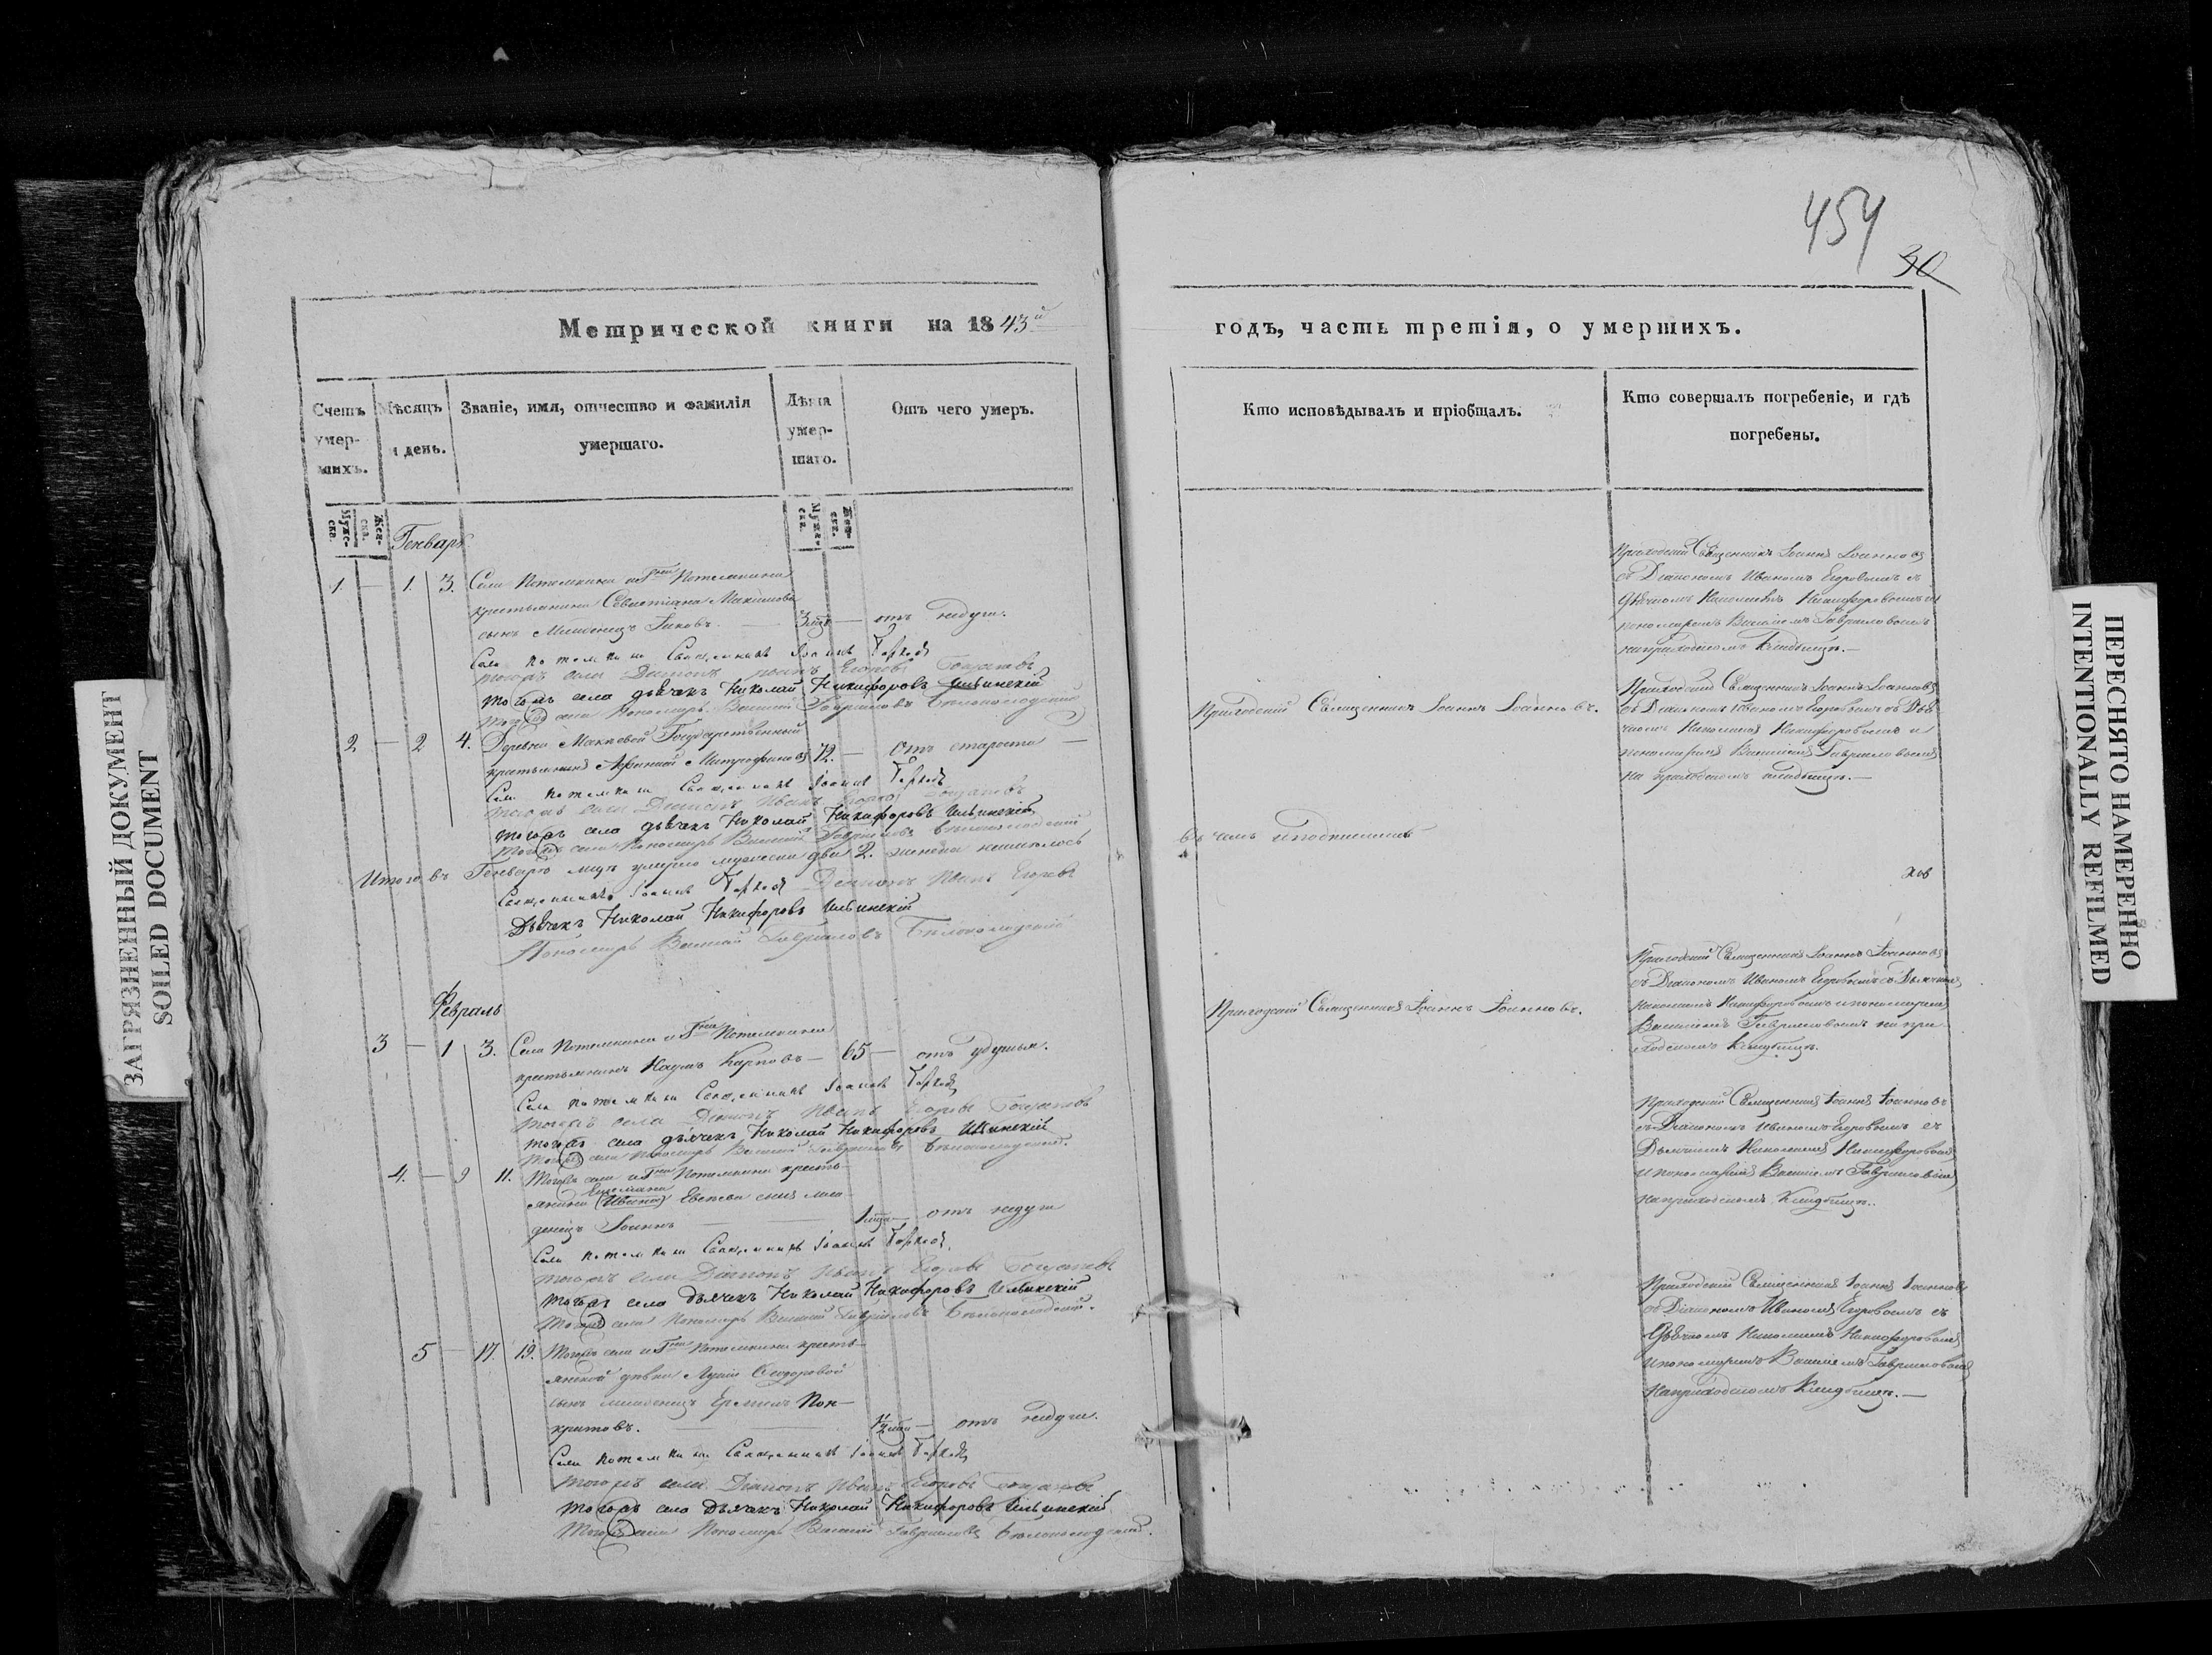 454
30
Метрической книги на 1843й
годъ, часть третія, о умершихъ.
Счетъ умер-шихъ.
Мѣсяцъ и день.
Званіе, имя, отчество и фамилія умершаго.
Лѣта умер-шаго.
Отъ чего умеръ.
Кто исповѣдывалъ и пріобщалъ.
Кто совершалъ погребеніе, и гдѣ погребены.
Мужеска.
Женска.
Мужеска.
Женска.
Генварь
1 — 1 3. Села Потемкина и Гжи Потемкиной
крестьянина Севастіана Максимова
сынъ младенецъ Іаковъ. — 3 — отъ недуги.
Села Потемкина Священникъ Іоаннъ
тогожъ села Діаконъ Иванъ Егоровъ
тогожъ села дьячекъ Николай Никифоровъ Ильинскій
тогожъ села Пономарь Василій Гавриловъ
Приходскій Священникъ Іоаннъ Іоанновъ
съ Діакономъ Иваномъ Егоровымъ съ
Дьячкомъ Николаемъ Никифоровымъ и
пономаремъ Василіемъ Гавриловымъ
на приходскомъ кладбищѣ. —
2 — 2 4. Деревни Государственный
крестьянинъ Митрофановъ 72. — Отъ старости —
Села Потемкина Священникъ Іоаннъ
тогожъ села Діаконъ Иванъ Егоровъ
тогожъ села дьячекъ Николай Никифоровъ Ильинскій
тогожъ села Пономарь Василій Гавриловъ
Приходскій Священникъ Іоаннъ Іоанновъ.
Приходскій Священникъ Іоаннъ Іоанновъ
съ Діакономъ Иваномъ Егоровымъ съ Дья-
чкомъ Николаемъ Никифоровымъ и
пономаремъ Василіемъ Гавриловымъ
на приходскомъ кладбищѣ. —
Итого въ Генварѣ мцѣ умерло мужеска два 2. женска неимѣлось
Священникъ Іоаннъ Діаконъ Иванъ Егоровъ
Дьячекъ Николай Никифоровъ Ильинскій
Пономарь Василій Гавриловъ
Въ чемъ и подписались
Февраль
3 — 1 3. Села Потемкина и Гжи Потемкиной
крестьянинъ Наумъ Карповъ — 65 — отъ удушья.
Села Потемкина Священникъ Іоаннъ
тогожъ села Діаконъ Иванъ Егоровъ
тогожъ села дьячекъ Николай Никифоровъ Ильинскій
тогожъ села Пономарь Василій Гавриловъ
Приходскій Священникъ Іоаннъ Іоанновъ.
Приходскій Священникъ Іоаннъ Іоанновъ
съ Діакономъ Иваномъ Егоровымъ съ Дьячкомъ
Николаемъ Никифоровымъ и пономаремъ
Василіемъ Гавриловымъ на при-
ходскомъ кладбищѣ.
4. — 9 11. Тогожъ села и Гжи Потемкиной кресть-
янина (Ивана) сынъ мла-
денецъ Іоаннъ — 1 — отъ недуги
Села Потемкина Священникъ Іоаннъ
тогожъ села Діаконъ Иванъ Егоровъ
тогожъ села дьячекъ Николай Никифоровъ Ильинскій
тогожъ села Пономарь Василій Гавриловъ
Приходскій Священникъ Іоаннъ Іоанновъ
съ Діакономъ Иваномъ Егоровымъ съ
Дьячкомъ Николаемъ Никифоровымъ
и пономаремъ Василіемъ Гавриловымъ
на приходскомъ кладбищѣ.
5 — 17. 19. Тогожъ села и Гжи Потемкиной кресть-
янской дѣвки Ѳедоровой
сынъ младенецъ
— отъ недуги.
Села Потемкина Священникъ Іоаннъ
тогожъ села Діаконъ Иванъ Егоровъ
тогожъ села дьячекъ Николай Никифоровъ Ильинскій
тогожъ села Пономарь Василій Гавриловъ
Приходскій Священникъ Іоаннъ Іоанновъ
съ Діакономъ Иваномъ Егоровымъ съ
Дьячкомъ Николаемъ Никифоровымъ
и пономаремъ Василіемъ Гавриловымъ
на приходскомъ кладбищѣ. —
ЗАГРЯЗНЕННЫЙ ДОКУМЕНТ
SOILED DOCUMENT
ПЕРЕСНЯТО НАМЕРЕННО
INTENTIONALLY REFILMED